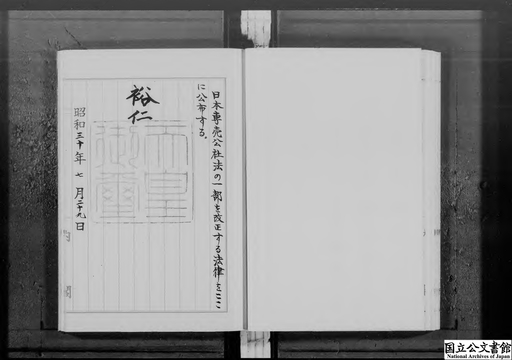 日本専売公社法の一部を改正する法律をここ
に公布する。
裕仁
天皇
御璽
昭和三十年七月二十九日
国立公文書館
National Archives of Japan